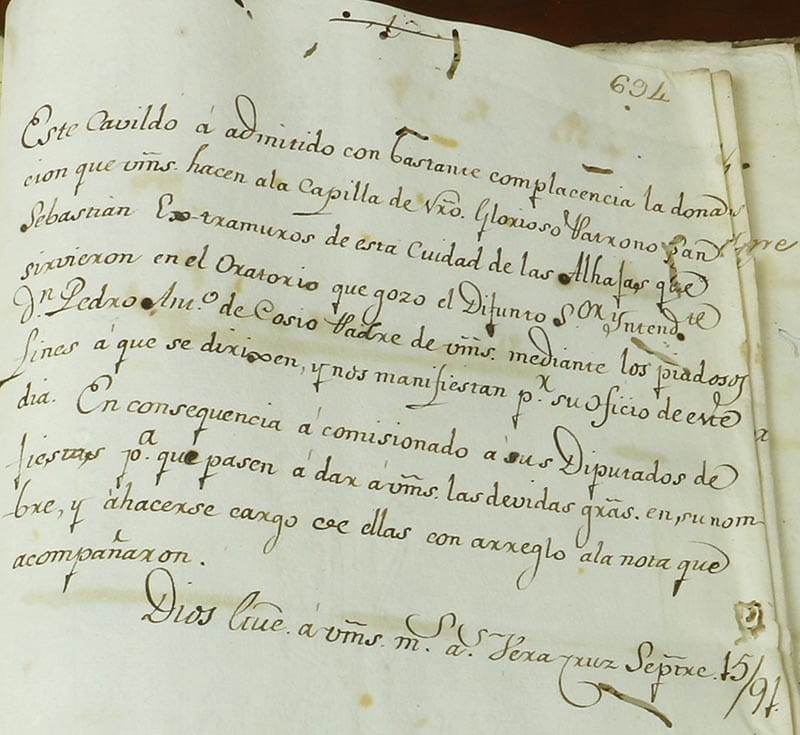 694
Este Cavildo á admitido con bastante complacencia la dona
cion que vms. hacen ala Capilla de Vro. Glorioso Patrono San
Sebastian Extramuros de esta Cuidad de las Alhajas que
sirvieron en el Oratorio que gozo el Difunto S.or Yntend.te
D.n Pedro Ant.o de Cosio Padre de vms. mediante los piadosos
fines á que se dirixen, y nos manifiestan p.r su Oficio de este
dia. En consequencia á comisionado á sus Diputados de
fiestas p.a que pasen á dar á vms. las devidas gras. en su nom
bre, y áhacerse cargo de ellas con arreglo ala nota que
acompañaron.
Dios Gue. á vms. m.s a.s Vera Cruz Septre. 15/91.